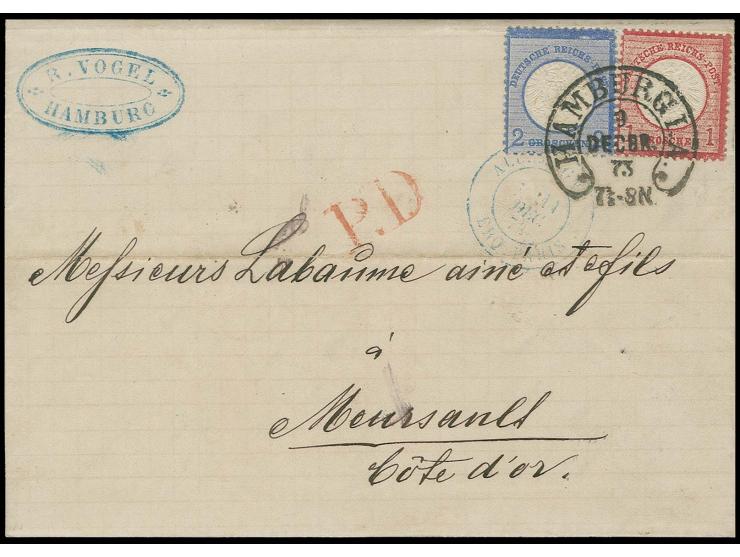 R. VOGEL
HAMBURG
DEUTSCHE REICHS-POST
2 GROSCHEN 2
DEUTSCHE REICHS-POST
1 GROSCHEN 1
HAMBURG I.A.
9
DECBR.
73
7½-8N.
P.D
11
DEC.
Messieurs Labaume ainé et fils
à
Meursault
Côte d'or.